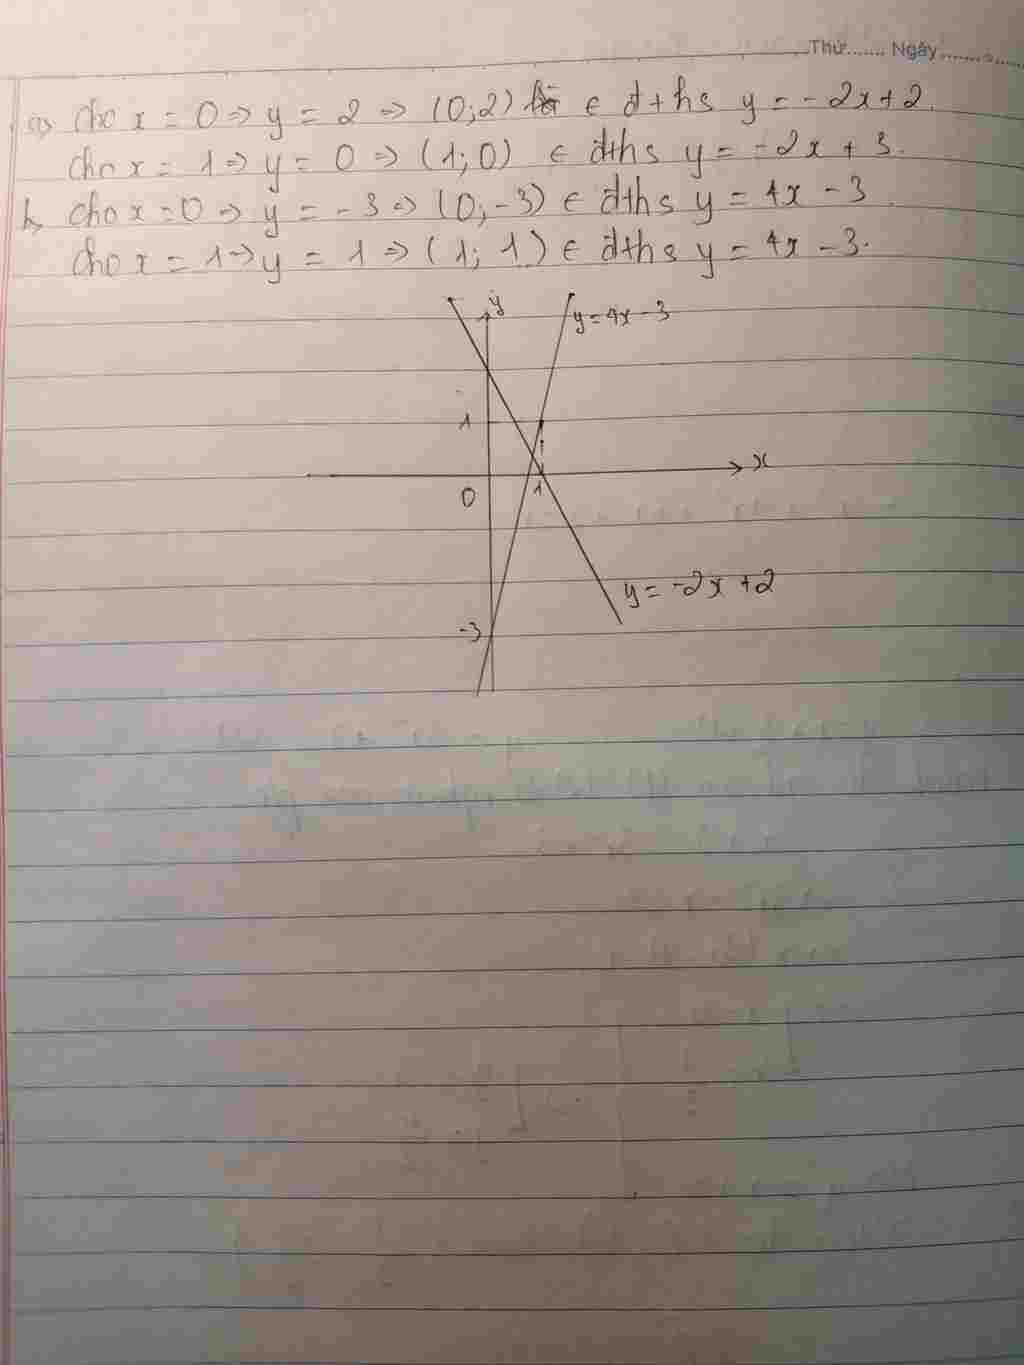 Thứ....... Ngày............
a) Cho x = 0 => y = 2 => (0;2) ∈ đths y = -2x+2.
Cho x = 1 => y = 0 => (1;0) ∈ đths y = -2x + 3.
b, Cho x = 0 => y = -3 => (0;-3) ∈ đths y = 4x - 3.
Cho x = 1 => y = 1 => (1; 1) ∈ đths y = 4x - 3.
y
y = 4x - 3
1
x
0
1
y = -2x + 2
-3